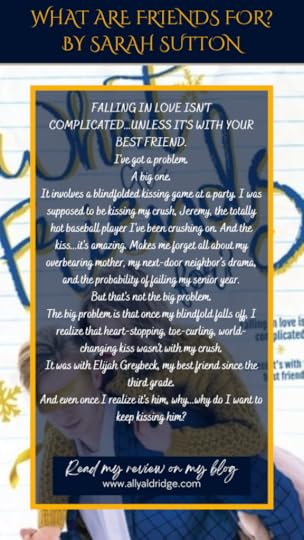 WHAT ARE FRIENDS FOR?
BY SARAH SUTTON
What
Friends
FALLING IN LOVE ISN'T
COMPLICATED...UNLESS IT'S WITH YOUR
BEST FRIEND.
I've got a problem.
A big one.
It involves a blindfolded kissing game at a party. I was
supposed to be kissing my crush, Jeremy, the totally
hot baseball player I've been crushing on. And the
kiss...it's amazing. Makes me forget all about my
overbearing mother, my next-door neighbor's drama,
and the probability of failing my senior year.
But that's not the big problem.
The big problem is that once my blindfold falls off, I
realize that heart-stopping, toe-curling, world-
changing kiss wasn't with my crush.
It was with Elijah Greybeck, my best friend since the
third grade.
And even once I realize it's him, why...why do I want to
keep kissing him?
in love is
plicated
t's with
st friend
Read my review on my blog
www.allyaldridge.com